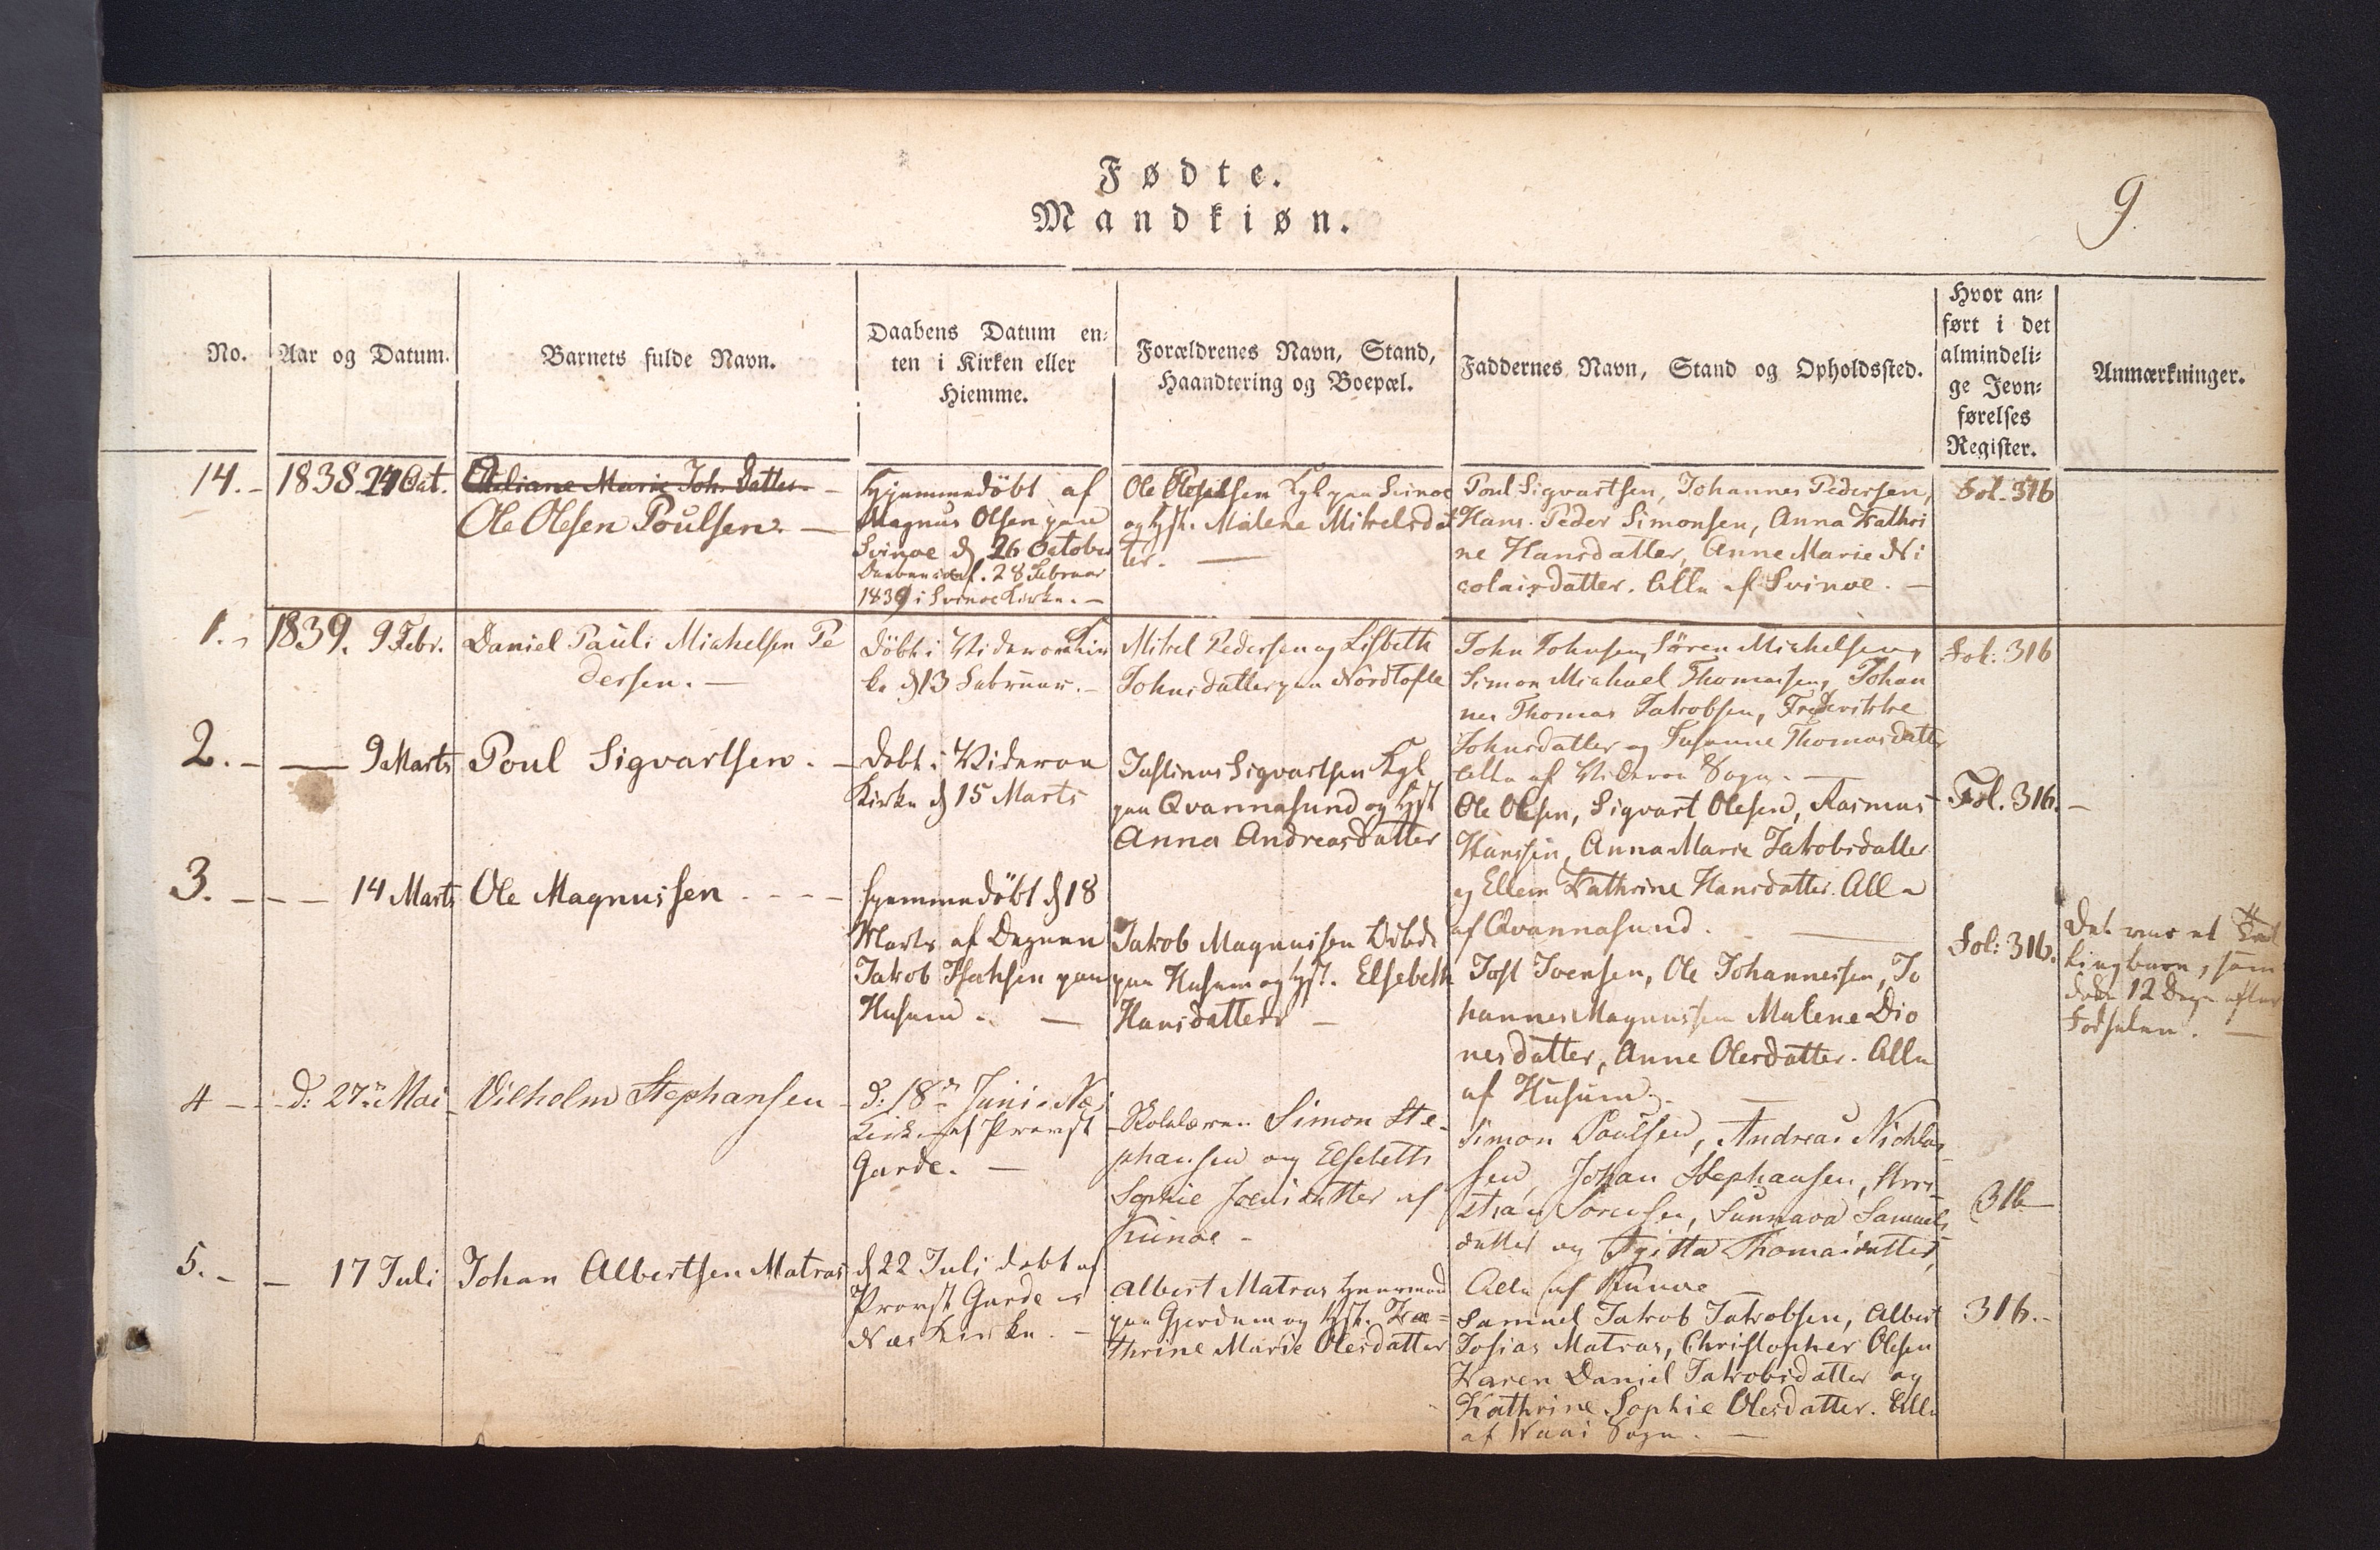 Fødte.
Mandkiøn.
9.
No.
Aar og Datum.
Barnets fulde Navn.
Daabens Datum en-
ten i Kirken eller
Hiemme.
Forældrenes Navn, Stand,
Haandtering og Boepæl.
Faddernes Navn, Stand og Opholdssted.
Hvor an-
ført i det
almindeli-
ge Jevn-
førelses
Register.
Anmærkninger.
14.-
1838. 24 Oct.
Marie Joh. Datter
Ole Olesen Poulsen.
Hjemmedöbt af
Magnus Olsen paa
Svinoe d 26 October
28 Februar
1839 i Svinoe Kirke.
Ole Poulsen Kgl paa Svinoe
og Hst. Malene Mikelsdat
ter.
Poul Sigvartsen, Johannes Pedersen,
Hans Peder Simonsen, Anna Kathri
ne Hansdatter, Anne Marie Ni
colaisdatter. Alle af Svinoe.
Fol. 316
1.-
1839. 9 Febr.
Daniel Pauli Michelsen Pe
dersen.
Döbt i Videroe Kir
ke d 13 Februar.
Mikel Pedersen og Lisbeth
Johnsdatter paa Nordtofte
John Johnsen, Sören Michelsen,
Simon Michael Thomasen, Johan
nes Thomas Jakobsen, Frederikke
Johnsdatter og Susanne Thomasdatter
Alle af Videroe Sogn.
Fol: 316
2.-
9 Marts
Poul Sigvartsen.
Dobt i Videroe
Kirke d 15 Marts
Justinus Sigvartsen Kgl
paa Qvannasund og Hst
Anna Andreasdatter
Ole Olesen, Sigvart Olesen, Rasmus
Hansen, Anna Marie Jakobsdatter
og Ellen Kathrine Hansdatter. Alle
af Qvannasund.
Fol. 316.
3.
14 Marts
Ole Magnussen
Hjemmedöbt d 18
Marts af Degnen
Jakob Isaksen paa
Husum.
Jakob Magnussen
paa Husum og Hst. Elsebeth
Hansdatter
Jost Joensen, Ole Johannesen, Jo
hannes Magnussen Malene Dio
nesdatter, Anne Olesdatter. Alle
af Husum.
Fol: 316.
Det var et
lingbarn, som
døde 12 Dage efter
Fødselen.
4
d: 27de Mai
Vilholm Stephansen
d: 18de Juni i Næs
Kirke af Provst
Garde.
Skolelærer Simon Ste-
phansen og Elsebeth
Sophie Joensdatter af
Kunoe
Simon Poulsen, Andreas Nichla-
sen, Johan Stephansen, Chri-
stian Sörensen, Sunnava Samuels
datter og Thomasdatter,
Alle af Kunoe
316
5.-
17 Juli
Johan Albertsen Matras
d 22 Juli dobt af
Provst Garde i
Næs Kirke.
Albert Matras
paa Gjerdum og Hst. Ka-
thrine Marie Olesdatter
Samuel Jakob Jakobsen, Albert
Josias Matras, Christopher Olesen
Karen Daniel Jakobsdatter og
Kathrine Sophie Olesdatter. Alle
af Waai Sogn.
316.